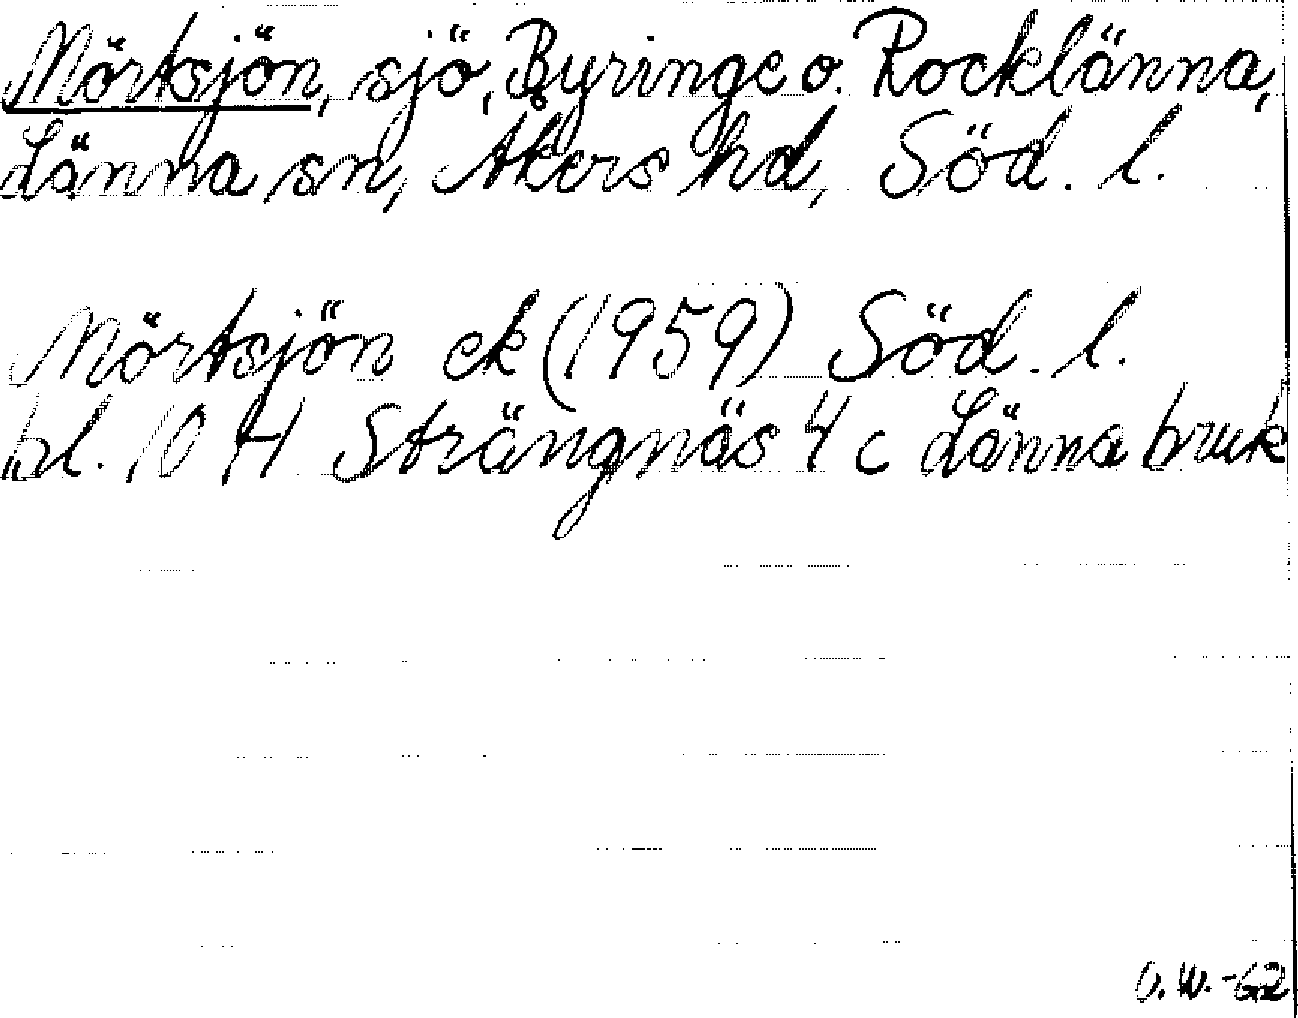 Mörtsjön, sjö, Byringe o. Rocklänna,
Länna sn, Åkers hd, Söd. l.
Mörtsjön ek (1959) Söd. l.
bl. 10 H Strängnäs 4 c Länna bruk
O.W.-62